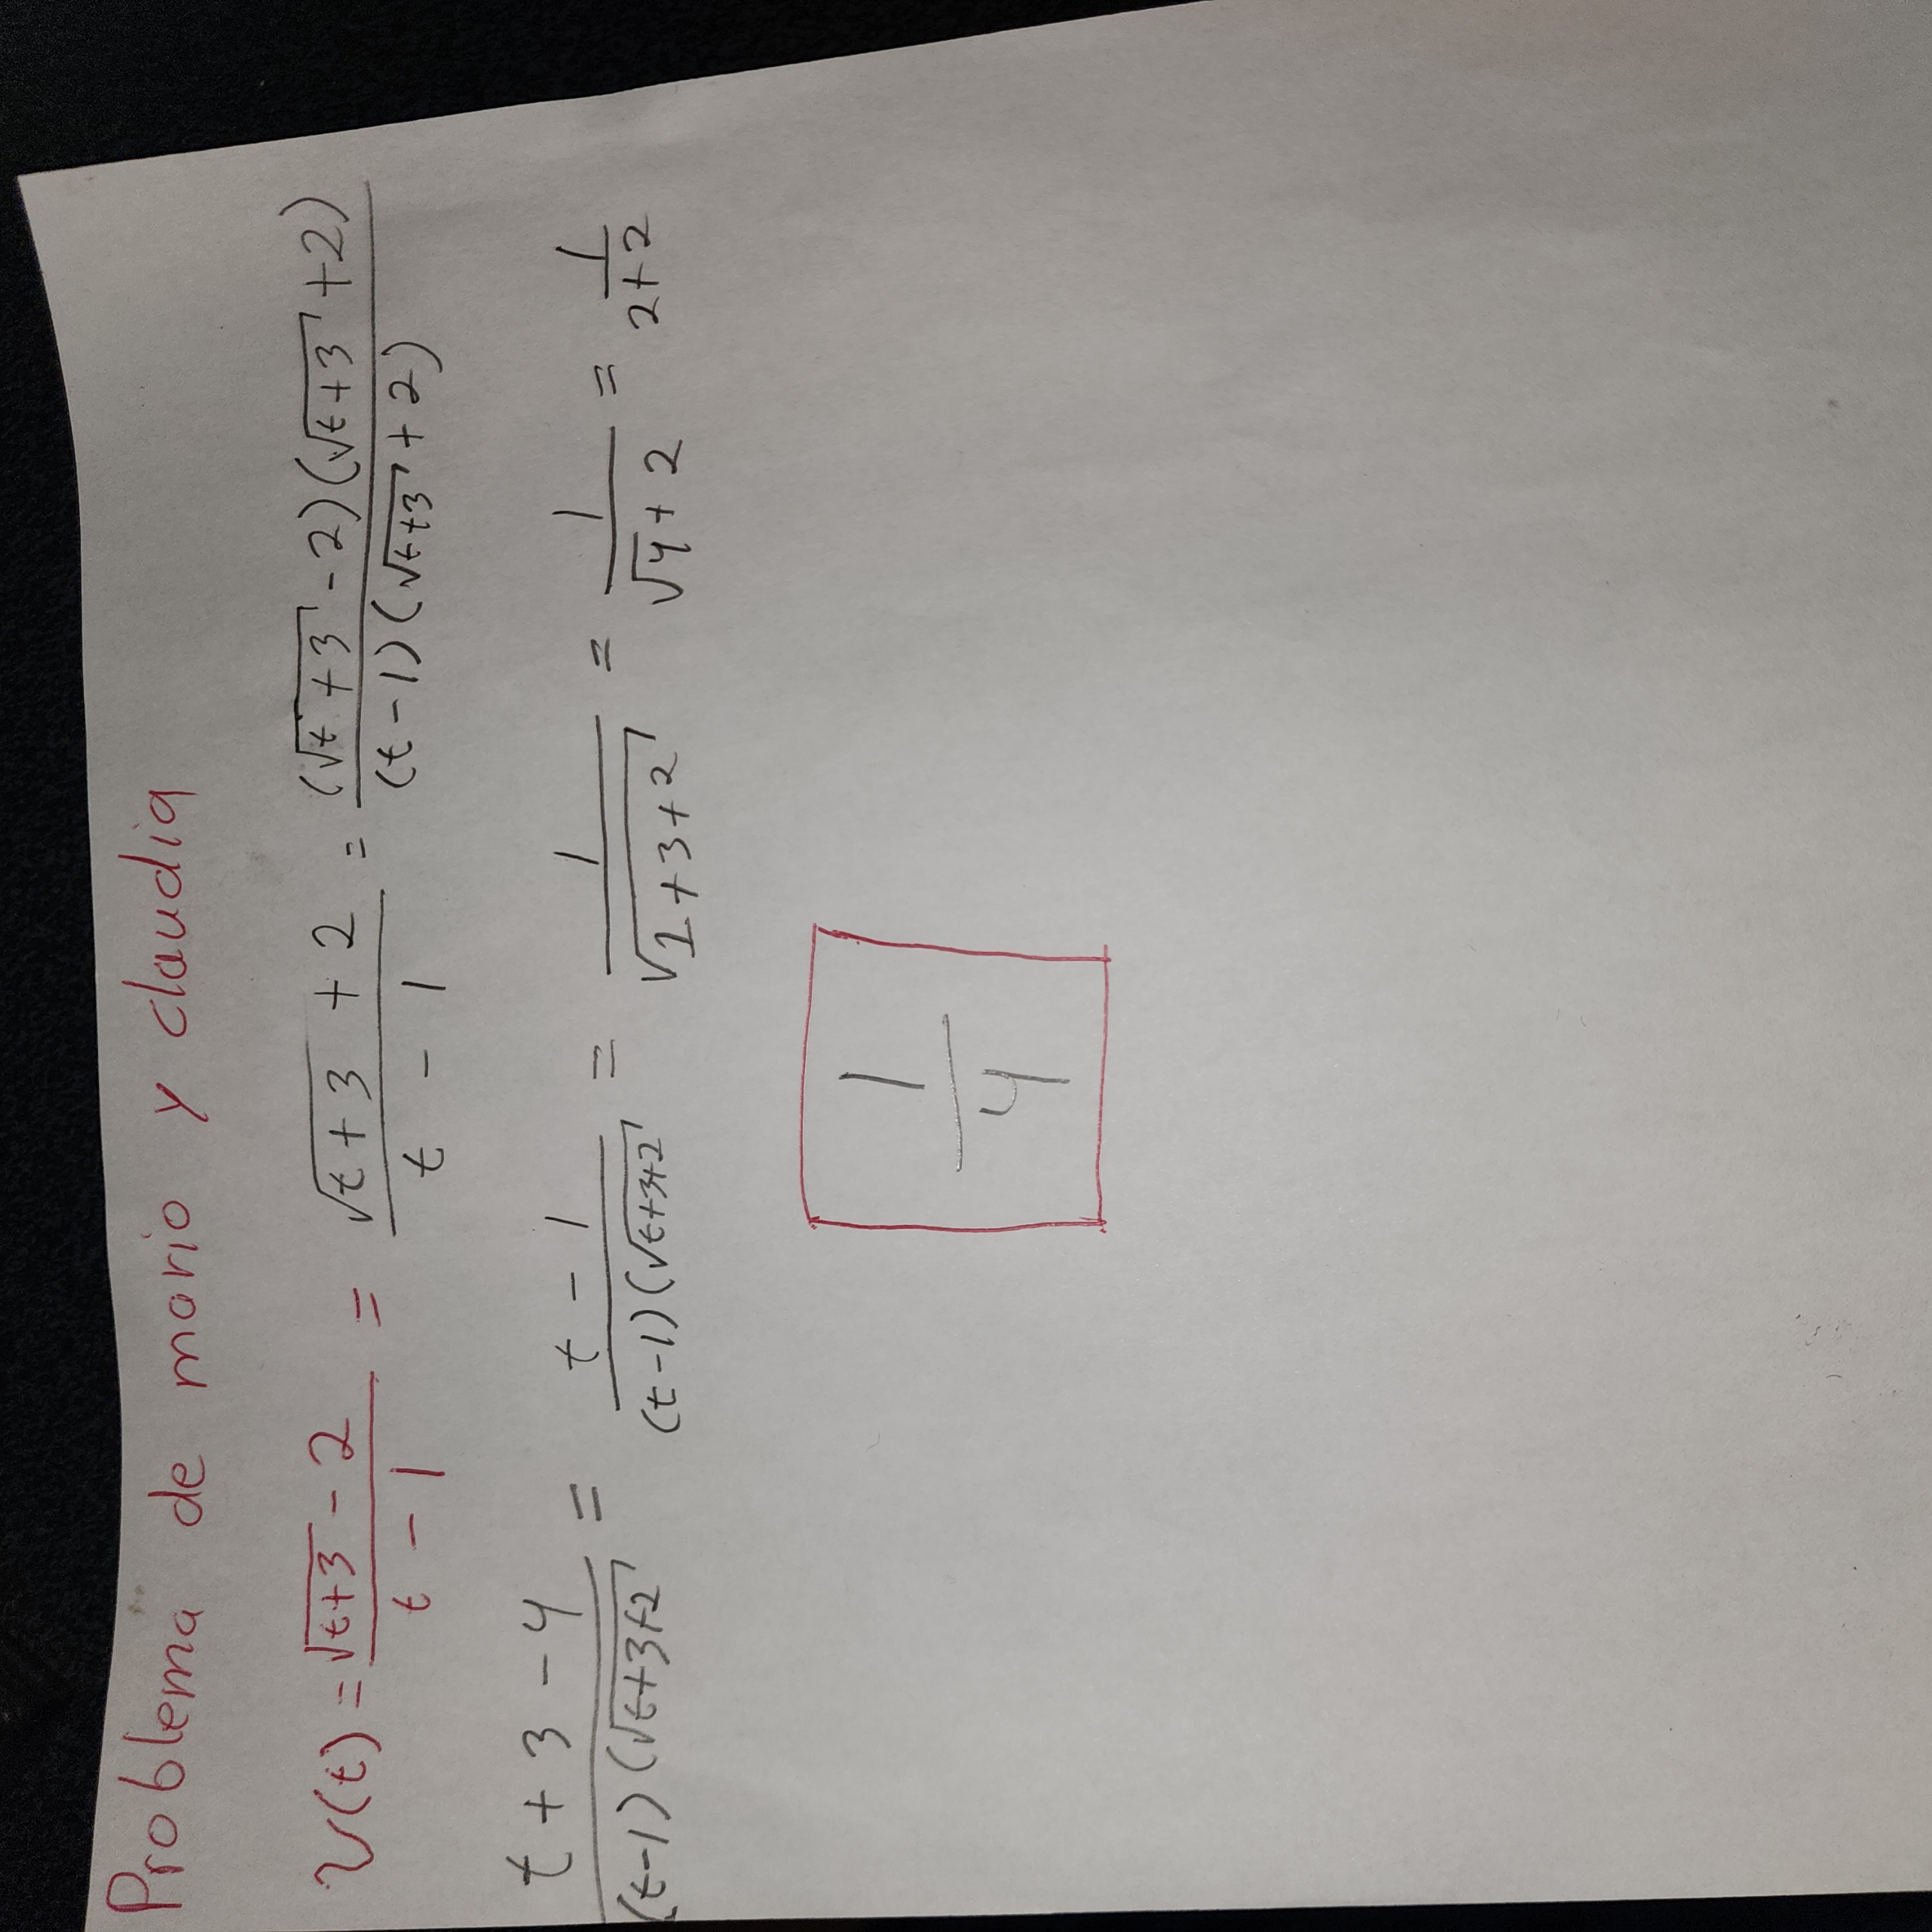 Problema de mario y claudia
V(t) = (√(t+3) - 2)/(t - 1) = (√(t+3) + 2)/(t - 1) = ((√(t+3) - 2)(√(t+3) + 2))/((t-1)(√(t+3) + 2))
(t + 3 - 4)/((t-1)(√(t+3+2)) = (t - 1)/((t-1)(√(t+3+2)) = 1/√(1+3+2) = 1/(√4 + 2) = 1/(2+2)
1/4